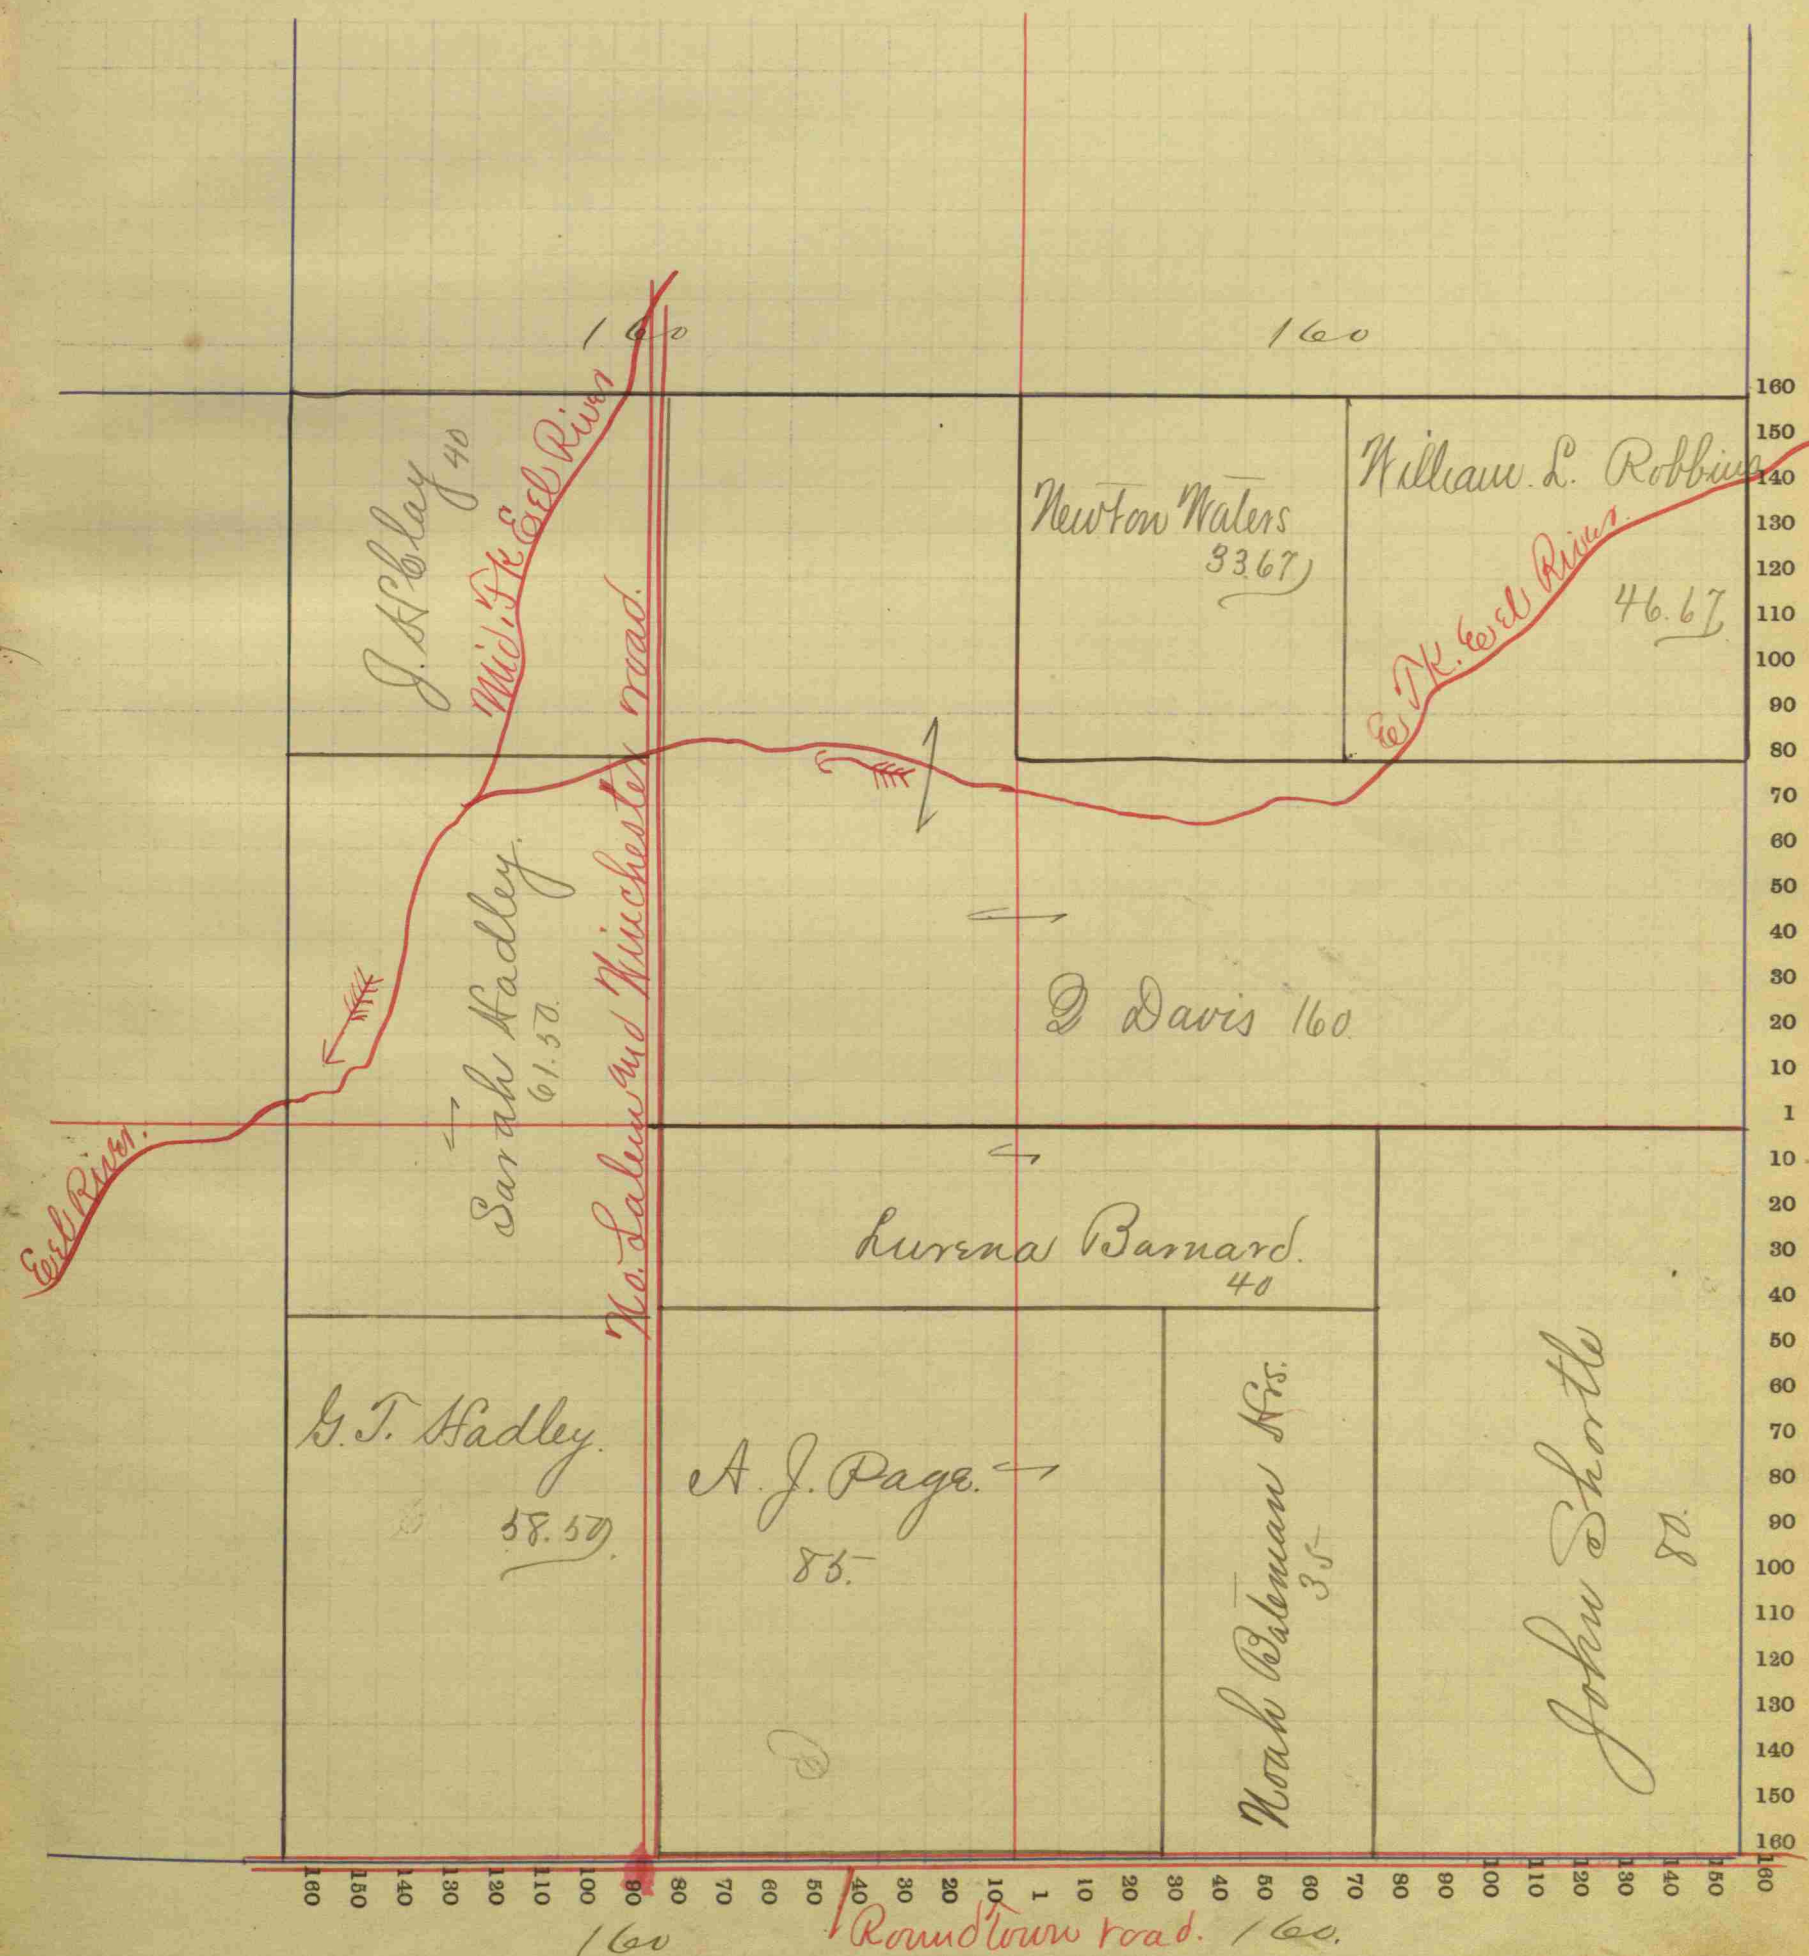 160
160
J. H Clay 40
Mid. Fk Eel River
Newton Waters
33.67
William. L. Robbins
46.67
E Fk. Eel River.
Sarah Hadley.
61.50.
No. Salem and Winchester road.
Davis 160
Eel River.
Lurena Barnard.
40
G. T. Hadley.
58.50
A. J. Page.
85.
Noah Bateman Hrs.
35
John Shortle
80.
160
150
140
130
120
110
100
90
80
70
60
50
40
30
20
10
1
10
20
30
40
50
60
70
80
90
100
110
120
130
140
150
160
160 150 140 130 120 110 100 90 80 70 60 50 40 30 20 10 1 10 20 30 40 50 60 70 80 90 100 110 120 130 140 150 160
160
Roundtown road.
160.